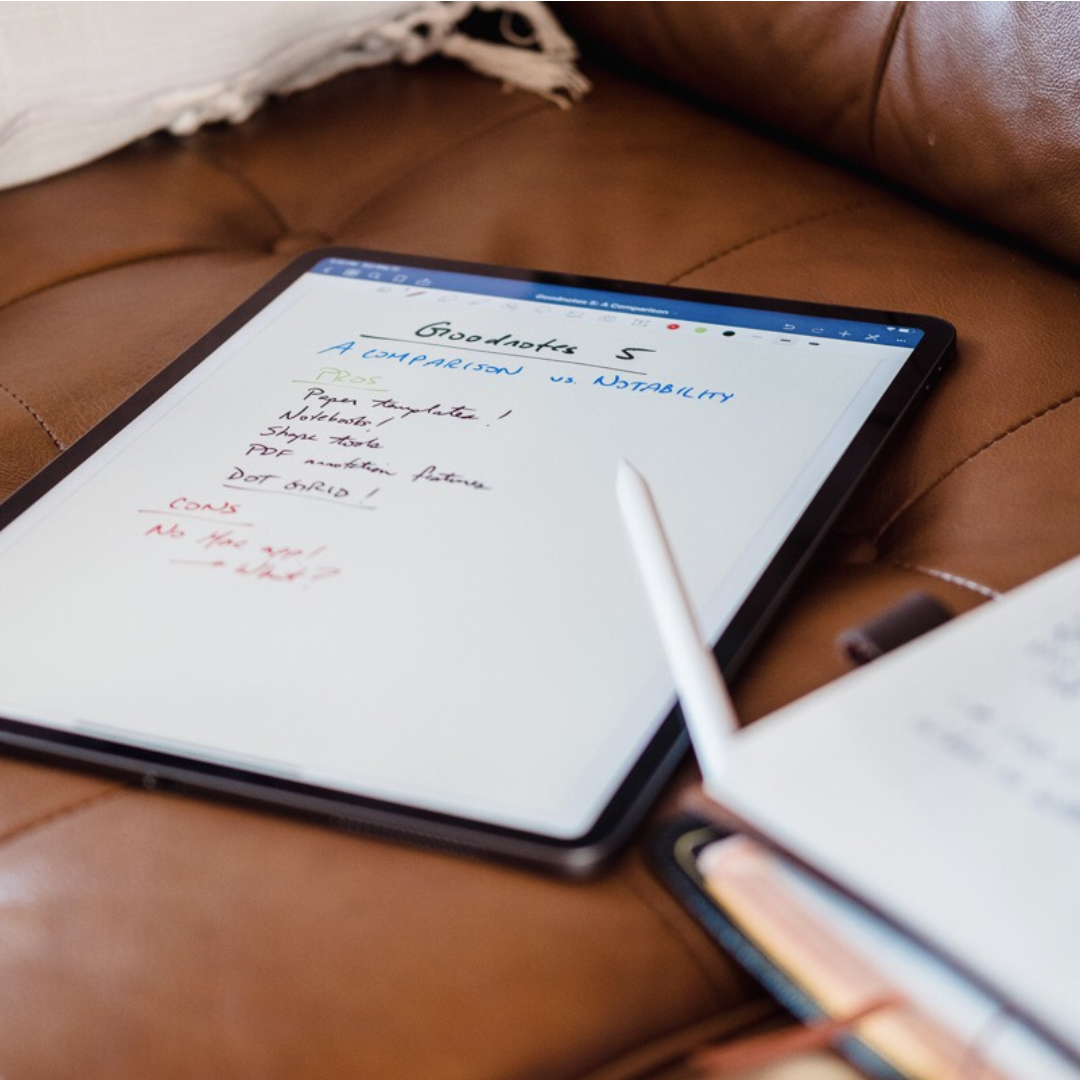 Goodnotes 5: A Comparison
Goodnotes 5
A COMPARISON vs. NOTABILITY
PROS
Paper templates!
Notebooks!
Shape tools
PDF annotation features
DOT GRID!
CONS
No Mac app!
→ What?